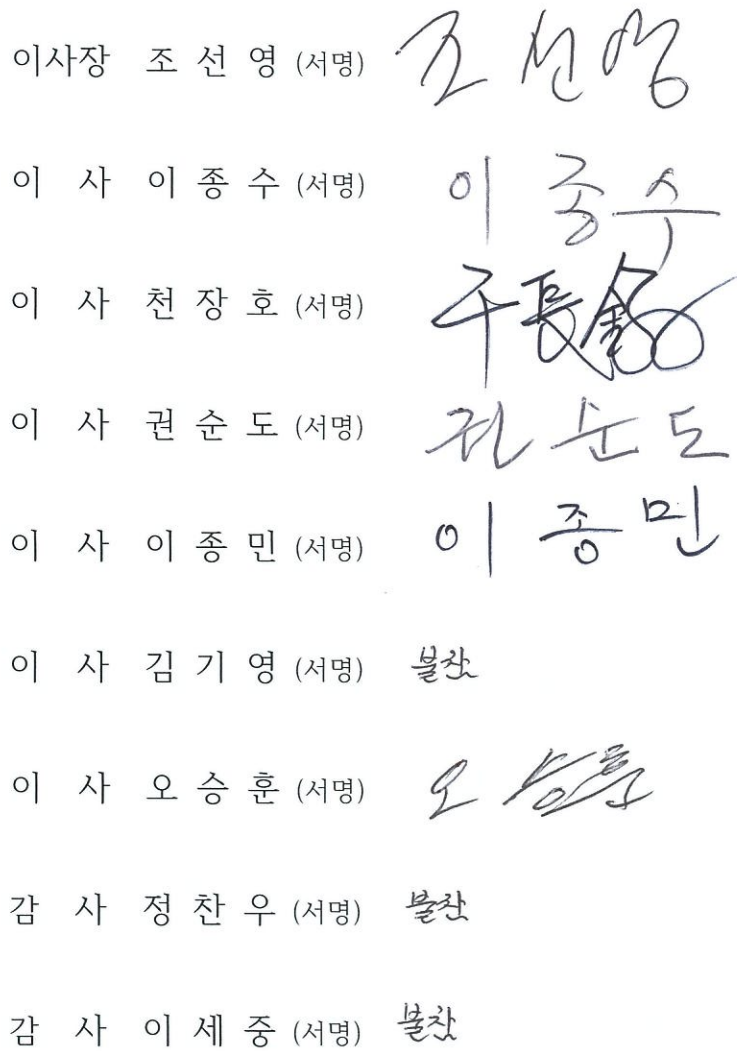 이사장 조 선 영 (서명) 조 선 영
이 사 이 종 수 (서명) 이 종 수
이 사 천 장 호 (서명) 千長鎬
이 사 권 순 도 (서명) 권 순 도
이 사 이 종 민 (서명) 이 종 민
이 사 김 기 영 (서명) 불참
이 사 오 승 훈 (서명) 오 승훈
감 사 정 찬 우 (서명) 불참
감 사 이 세 중 (서명) 불참